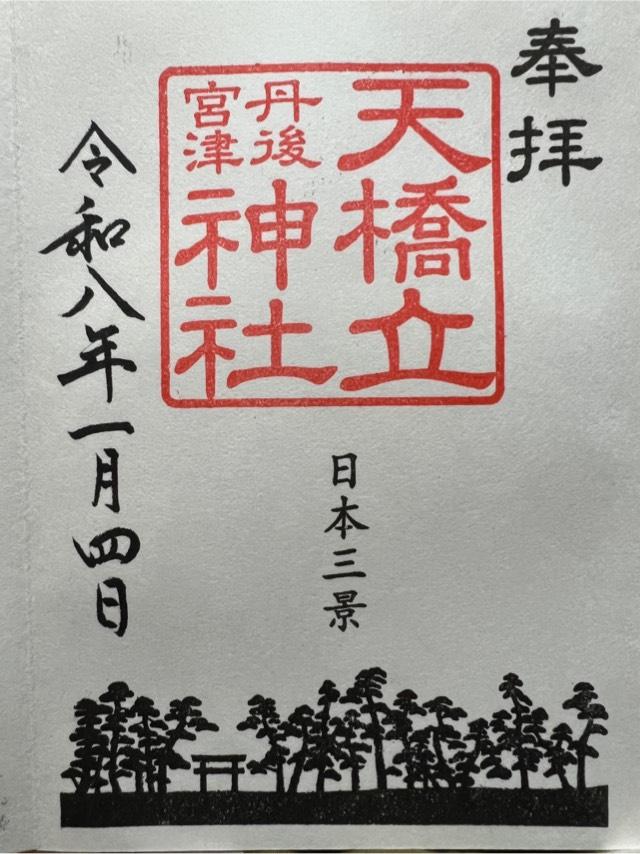 奉拝
天橋立
丹後
宮津
神社
日本三景
令和八年一月四日